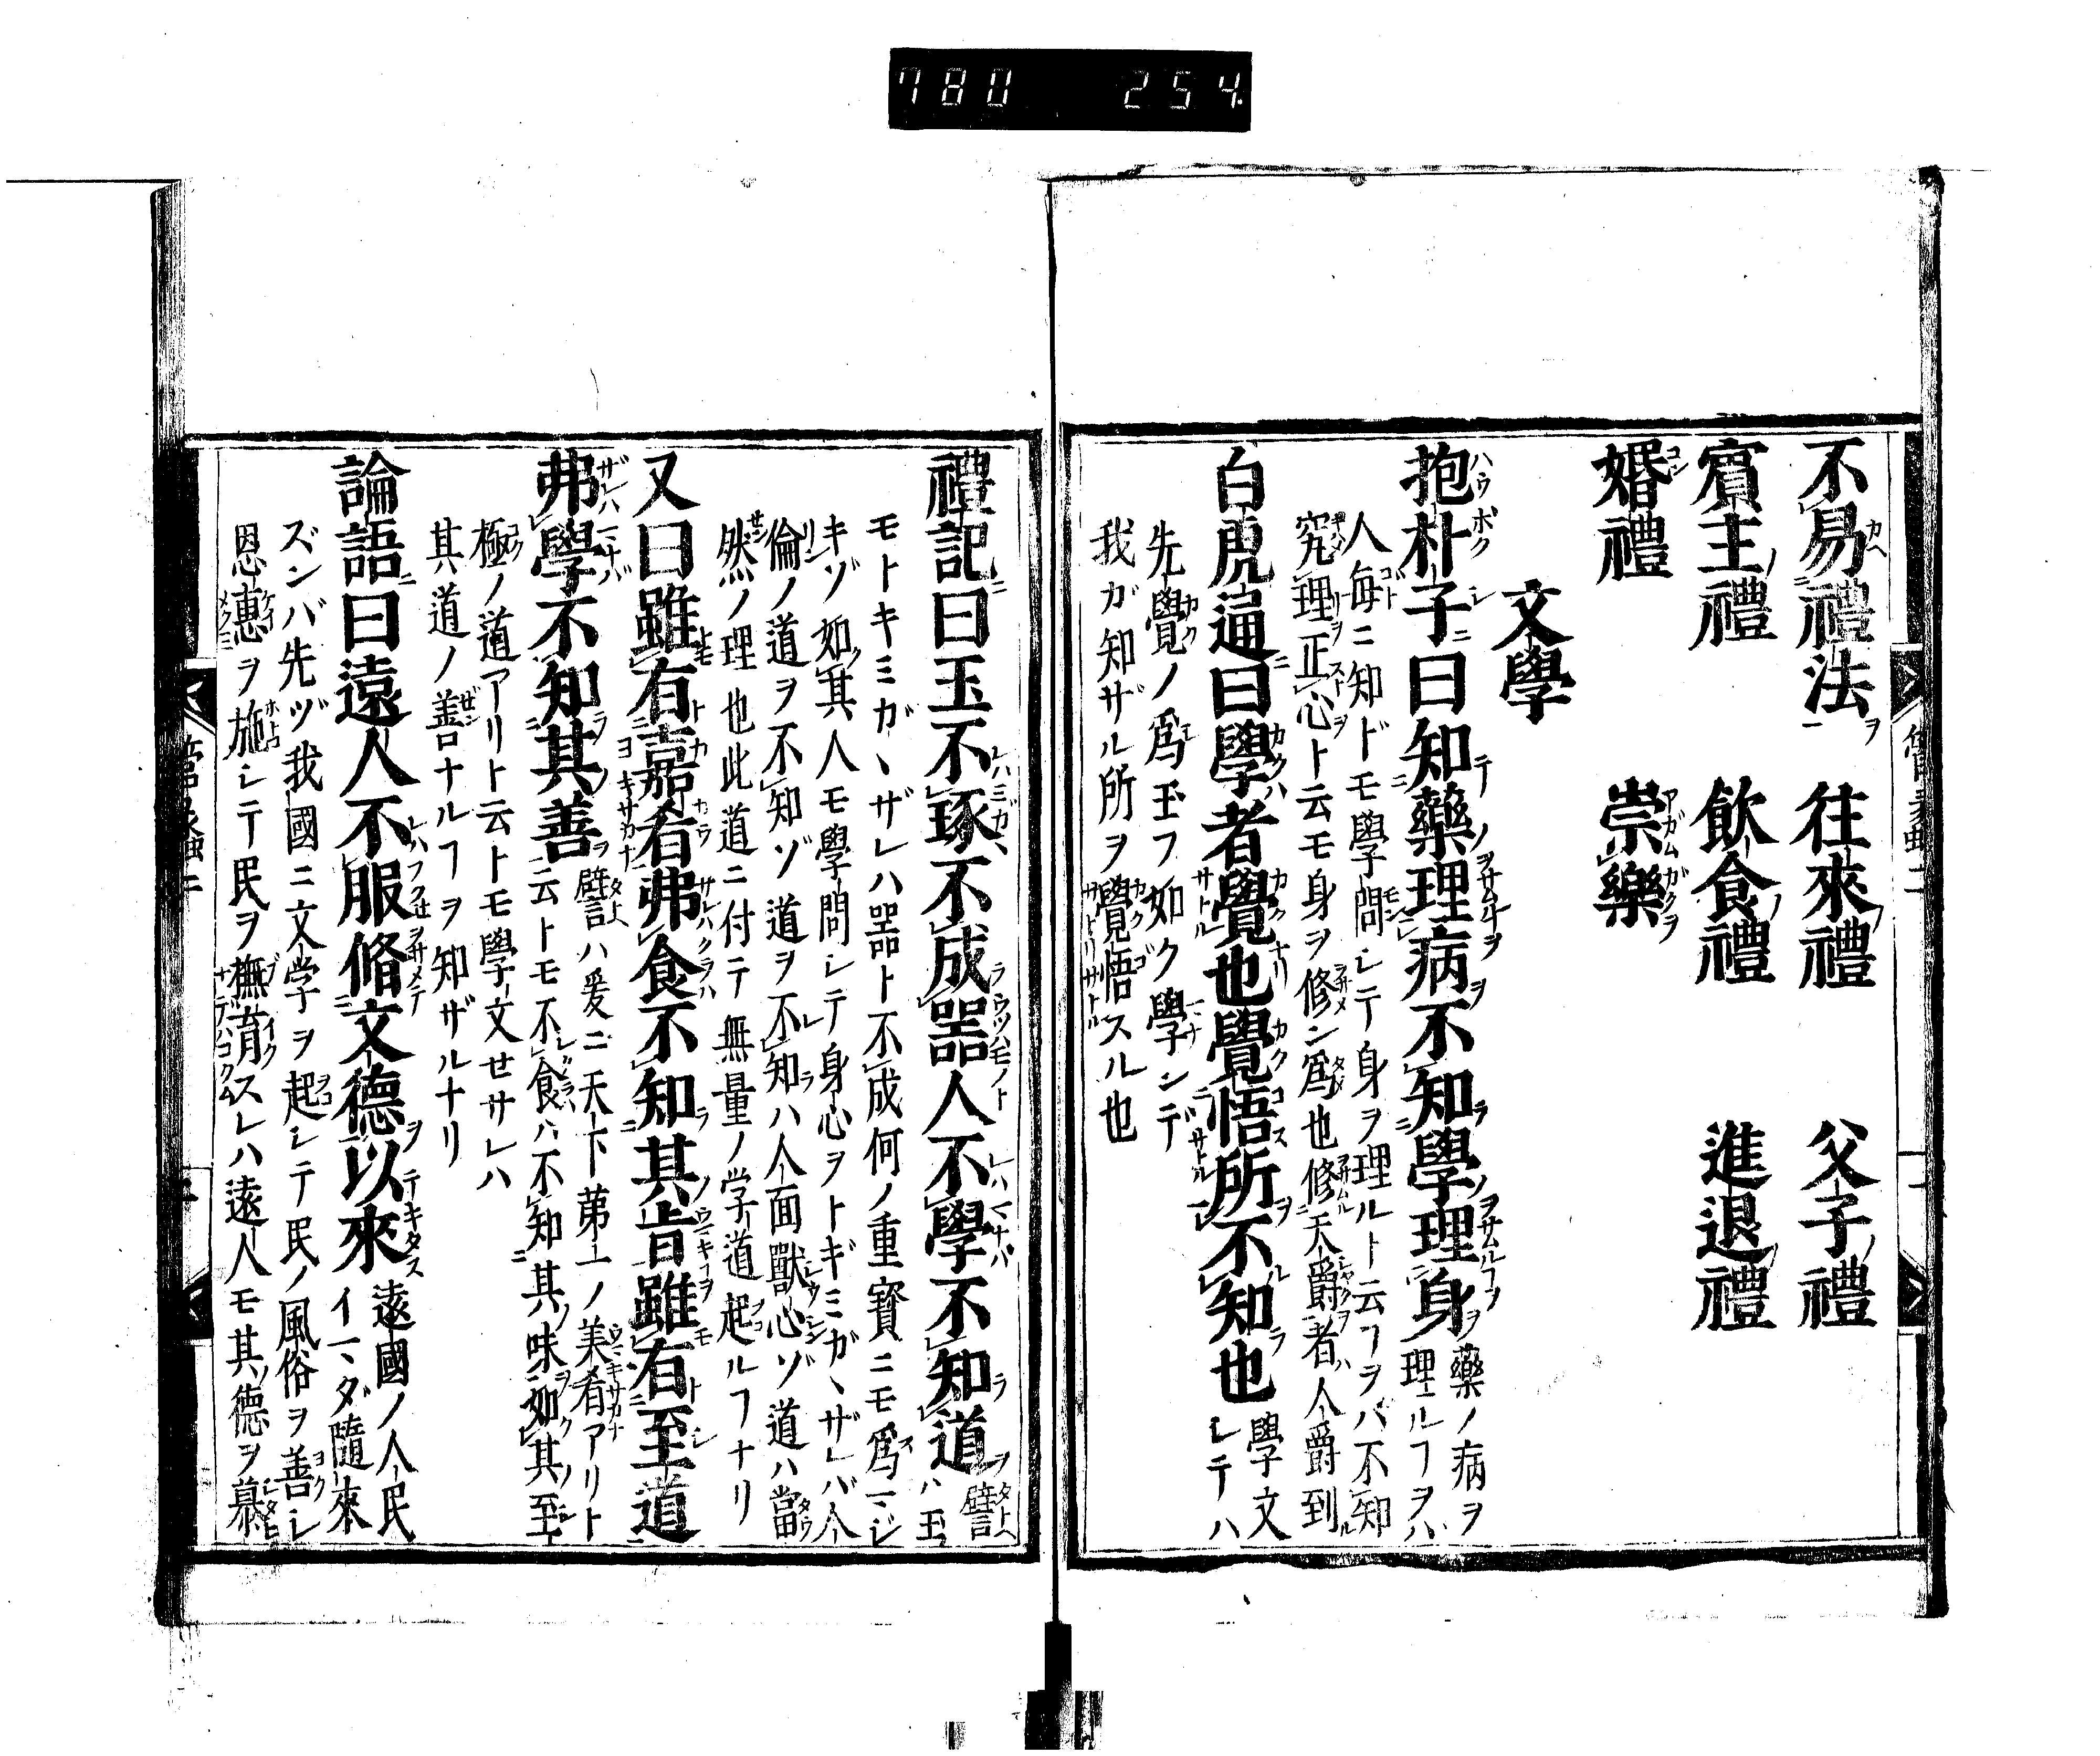 780 254
不易禮法 往來禮 父子禮
賓主禮 飲食禮 進退禮
婚禮 崇樂
文學
抱朴子曰知藥理病不知學理身
藥ノ病ヲ
理ルヿヲバ
人毎ニ知ドモ學問シテ身ヲ理ルト云フヲバ不知
究理正心ト云モ身ヲ修ン爲也修天爵者ハ人爵到ル
白虎通曰學者覺也覺悟所不知也
學文
シテハ
先覺ノ爲玉フ如ク學ンデ
我ガ知ザル所ヲ覺悟スル也
禮記曰玉不琢不成噐人不學不知道
譬ヘ
ハ玉
モトキミガヽザレハ噐ト不成何ノ重寳ニモ爲マジ
キゾ如其人モ學問シテ身心ヲトギミガヽザレバ人
倫ノ道ヲ不知ゾ道ヲ不知ハ人面獸心ゾ道ハ當
然ノ理也此道ニ付テ無量ノ学道起ルヿナリ
又曰雖有嘉肴弗食不知其旨雖有至道
弗學不知其善
譬ハ爰ニ天下第一ノ美肴アリト
云トモ不食ハ不知其味如其至
極ノ道アリト云トモ學文セサレハ
其道ノ善ナルヿヲ知ザルナリ
論語曰遠人不服脩文德以來
遠國ノ人民
イマダ隨來
ズンバ先ヅ我國ニ文学ヲ起シテ民ノ風俗ヲ善シ
恩惠ヲ施シテ民ヲ撫育スレハ遠人モ其德ヲ慕